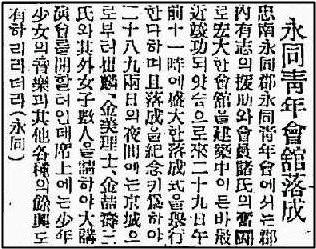 永同靑年會舘落成
忠南永同郡永同靑年會에서는郡
內有志의援助와會員諸氏의奮鬪
로宏大한會舘을建築中이든바最
近竣功되얏슴으로來二十九日午
前十一時에盛大한落成式을擧行
한다하며且落成을紀念키爲하야
二十八九兩日의夜間에는京城으
로부터 麟、金美理士、金品壽二
氏와其外女子數人을請하야大講
演會를開할터인데席上에는少年
少女의音樂과其他各種의餘興도
有하리라더라(永同)